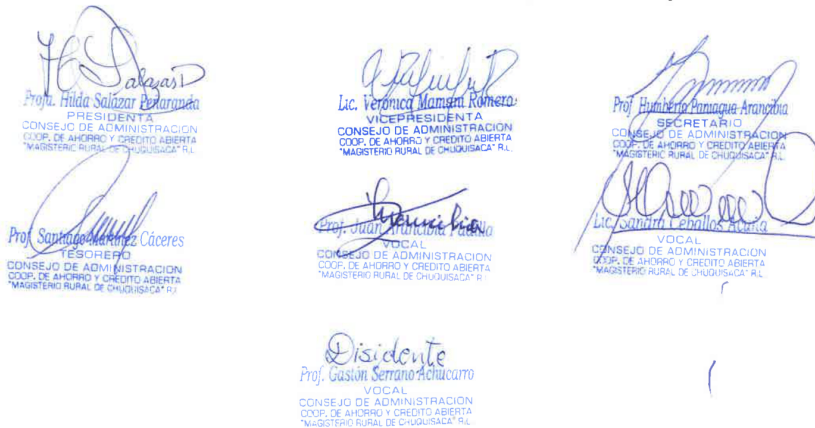 H Salazar P
Profa. Hilda Salazar Peñaranda
PRESIDENTA
CONSEJO DE ADMINISTRACION
COOP. DE AHORRO Y CREDITO ABIERTA
"MAGISTERIO RURAL DE CHUQUISACA" R.L.
Lic. Verónica Mamani Romero
VICEPRESIDENTA
CONSEJO DE ADMINISTRACION
COOP. DE AHORRO Y CREDITO ABIERTA
"MAGISTERIO RURAL DE CHUQUISACA" R.L.
Prof. Humberto Paniagua Arancibia
SECRETARIO
CONSEJO DE ADMINISTRACION
COOP. DE AHORRO Y CREDITO ABIERTA
"MAGISTERIO RURAL DE CHUQUISACA" R.L.
Prof. Santiago Martínez Cáceres
TESORERO
CONSEJO DE ADMINISTRACION
COOP. DE AHORRO Y CREDITO ABIERTA
"MAGISTERIO RURAL DE CHUQUISACA" R.L.
Prof. Juan Arancibia Padilla
VOCAL
CONSEJO DE ADMINISTRACION
COOP. DE AHORRO Y CREDITO ABIERTA
"MAGISTERIO RURAL DE CHUQUISACA" R.L.
Lic. Sandra Ceballos Acuña
VOCAL
CONSEJO DE ADMINISTRACION
COOP. DE AHORRO Y CREDITO ABIERTA
"MAGISTERIO RURAL DE CHUQUISACA" R.L.
Disidente
Prof. Gastón Serrano Achucarro
VOCAL
CONSEJO DE ADMINISTRACION
COOP. DE AHORRO Y CREDITO ABIERTA
"MAGISTERIO RURAL DE CHUQUISACA" R.L.